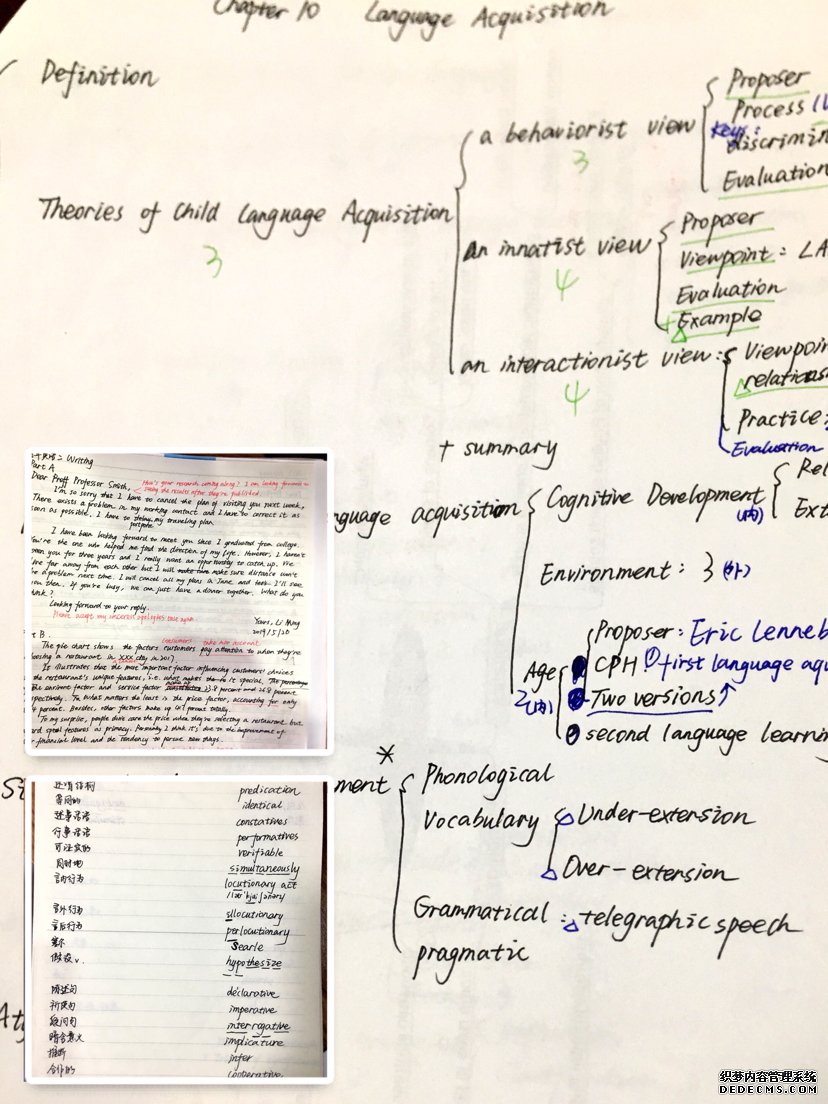 Chapter 10 Language Acquisition
Definition
Theories of Child Language Acquisition
3
a behaviorist view
3
Proposer
Process
Keys:
discrimin
Evaluation
an innatist view
4
Proposer
Viewpoint: LA
Evaluation
+ Example
an interactionist view:
4
Viewpoin
relations
Practice:
Evaluation
+ summary
nguage acquisition
Cognitive Development
(内)
Rel
Ext
Environment: 3 (外)
Age
2(内)
Proposer: Eric Lenneb
CPH ① first language aqu
Two versions↑
second language learnin
*
ment
Phonological
Vocabulary
Under-extension
Over-extension
Grammatical: telegraphic speech
pragmatic
Writing
Part A
Dear Professor Smith,
How's your research coming along? I am looking forward to
seeing the results after they're published.
I'm so sorry that I have to cancel the plan of visiting you next week.
There exists a problem in my working contact and I have to correct it as
soon as possible. I have to delay my traveling plan.
postpone
I have been looking forward to meet you since I graduated from college.
You're the one who helped me find the direction of my life. However, I haven't
seen you for three years and I really want an opportunity to catch up. We
are far away from each other but I will make sure distance won't
be a problem next time. I will cancel all my plans in June and I'll see
you then. If you're busy, we can just have a dinner together. What do you
think?
Looking forward to your reply.
Please accept my sincere apologies once again.
Yours, Li Ming
2019/5/20
t B.
consumers take into account
The pie chart shows the factors customers pay attention to when they're
choosing a restaurant in XXX city in 2017.
It illustrates that the most important factor influencing customers' choices
the restaurant's unique features, i.e. what makes it special. The
the environment factor and service factor 23.8 percent and 26.8 percent
spectively. To what matters the least is the price factor, accounting for only
percent. Besides, other factors make up percent totally.
To my surprise, people don't care the price when they're selecting a restaurant but
regard special features as primary. Personally I think it's due to the improvement of
financial level and the tendency to pursue new things.
述谓结构 predication
等同的 identical
述事话语 constatives
行事话语 performatives
可证实的 verifiable
同时地 simultaneously
言内行为 locutionary act
言外行为 illocutionary
言后行为 perlocutionary
塞尔 Searle
假设 v. hypothesize
陈述句 declarative
祈使句 imperative
疑问句 interrogative
暗含意义 implicature
推断 infer
合作的 cooperative
织梦内容管理系统
DEDECMS.COM